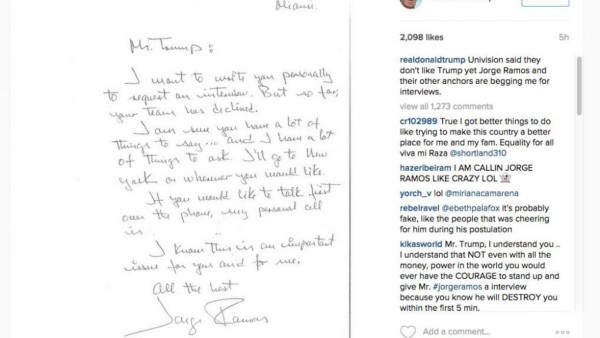 Miami.
Mr. Trump:
I want to write you personally
to request an interview. But so far,
your team has declined.
I am sure you have a lot of
things to say... and I have a lot
of things to ask. I'll go to New
York or wherever you would like.
If you would like to talk first
over the phone, my personal cell
is
I know this is an important
issue for you and for me.
All the best
Jorge Ramos
2,098 likes
5h
realdonaldtrump Univision said they
don't like Trump yet Jorge Ramos and
their other anchors are begging me for
interviews.
view all 1,273 comments
cr102989 True I got better things to do
like trying to make this country a better
place for me and my fam. Equality for all
viva mi Raza @shortland310
hazeribeiram I AM CALLIN JORGE
RAMOS LIKE CRAZY LOL
yorch_v lol @mirianacamarena
rebelravel @ebethpalafox it's probably
fake, like the people that was cheering
for him during his postulation
kikasworld Mr. Trump, I understand you ..
I understand that NOT even with all the
money, power in the world you would
ever have the COURAGE to stand up and
give Mr. #jorgeramos a interview
because you know he will DESTROY you
within the first 5 min.
Add a comment...